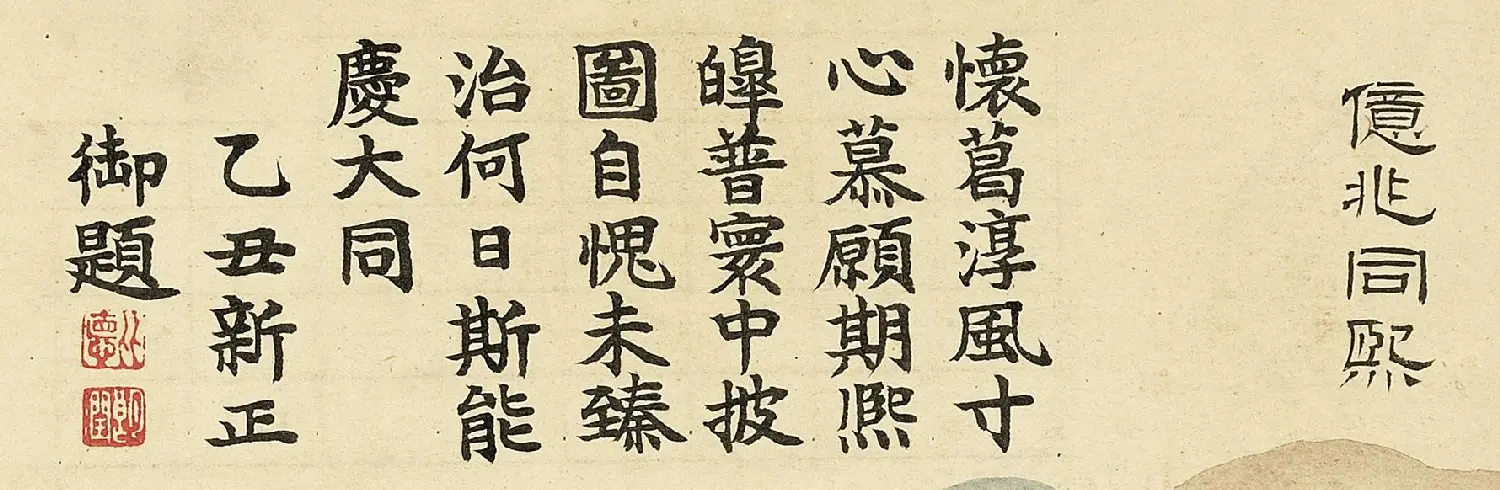 億兆同熙
懷葛淳風寸
心慕願期熙
皞普寰中披
圖自愧未臻
治何日斯能
慶大同
乙丑新正
御題
比德
朗潤